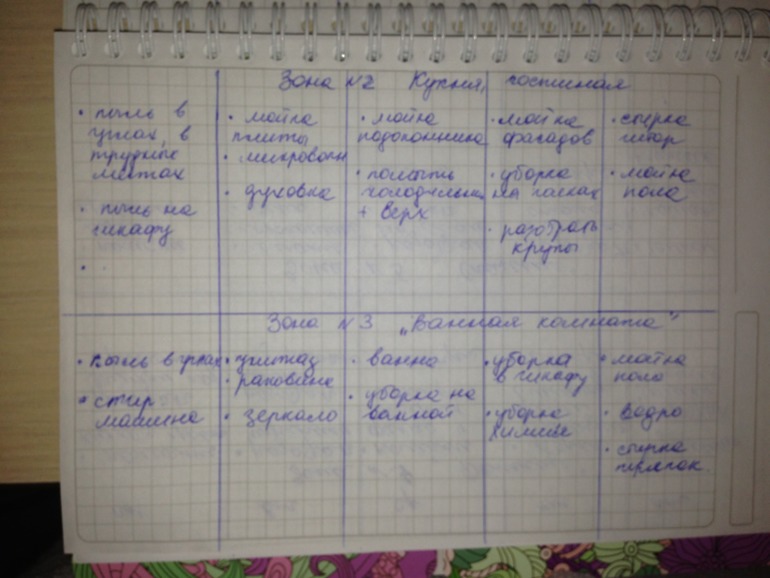 Зона №2 Кухня, гостиная
• пыль в
углах, в
трудных
местах
• пыль на
шкафу
•
• мойка
плиты
• микроволн
• духовка
• мойка
подоконника
• помыть
холодильник
+ верх
• мойка
фасадов
• уборка
на полках
• разобрать
крупы
• стирка
штор
• мойка
пола
Зона №3 „Ванная комната"
• пыль в углах
• стир
машина
• унитаз
• раковина
• зеркало
• ванна
• уборка на
ванной
• уборка
в шкафу
• уборка
химии
• мойка
пола
• ведро
• стирка